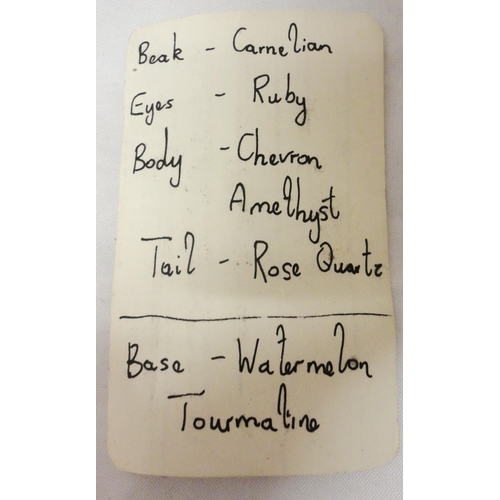 Beak - Carnelian
Eyes - Ruby
Body - Chevron
Amethyst
Tail - Rose Quartz
Base - Watermelon
Tourmaline